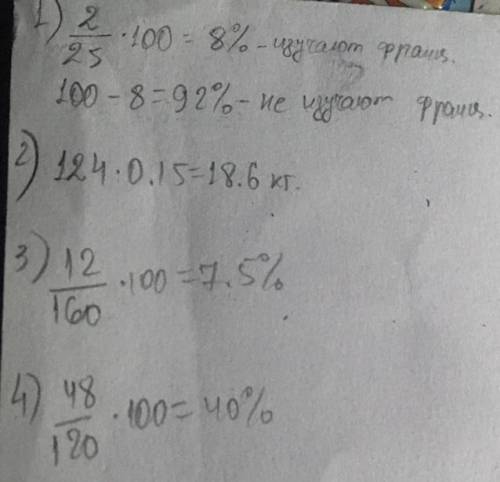 1) 2/25 · 100 = 8% - изучают франц.
100 - 8 = 92% - не изучают франц.
2) 124 · 0.15 = 18.6 кг.
3) 12/160 · 100 = 7.5%
4) 48/120 · 100 = 40%